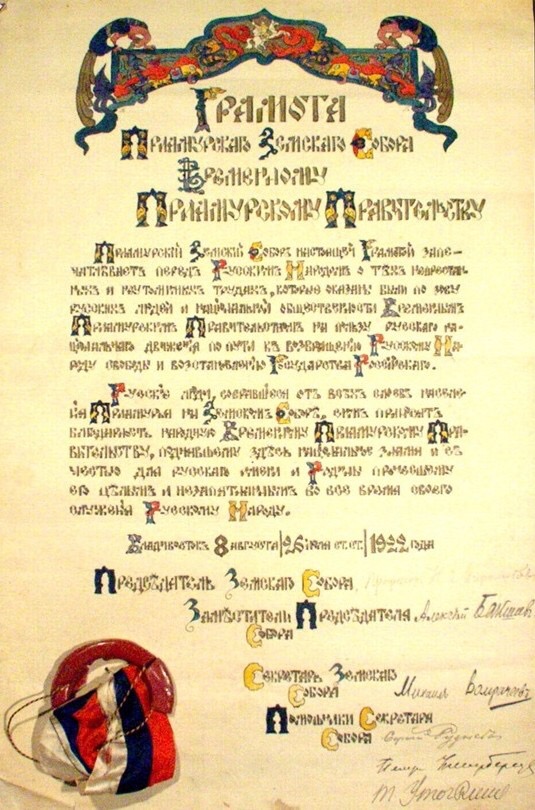 Грамота
Приамурскаго Земскаго Собора
Временному
Приамурскому Правительству
Приамурскій Земскій Соборъ настоящей Грамотой запе-
чатлѣваетъ передъ Русскимъ Народомъ о тѣхъ непрестан-
ныхъ и неутомимыхъ трудахъ, которые оказаны были по зову
русскихъ людей и національной общественности Временнымъ
Приамурскимъ Правительствомъ на пользу русскаго на-
ціональнаго движенія по пути къ возвращенію Русскому На-
роду свободы и возстановленію Государства Россійскаго.
Русскіе люди, собравшіеся отъ всѣхъ слоевъ населе-
нія Приамурья на Земскомъ Соборѣ, симъ приносятъ
благодарность народную Временному Приамурскому Пра-
вительству, поднявшему здѣсь національное знамя и съ
честью для русскаго имени и Родины пронесшему
его цѣлымъ и незапятнаннымъ во все время своего
служенія Русскому Народу.
Владивостокъ 8 августа/26 іюля ст. ст./1922 года
Предсѣдатель Земскаго Собора
Замѣститель Предсѣдателя Алексѣй Бакшеевъ
Собора
Секретарь Земскаго
Собора Михаилъ
Помощники Секретаря
Собора